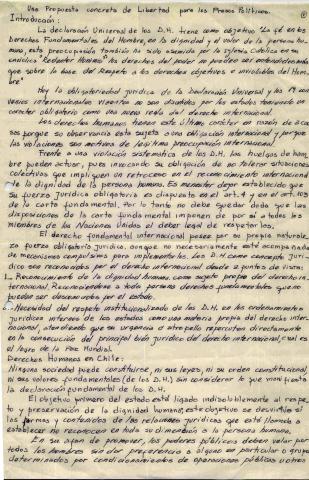 Una Propuesta concreta de Libertad para los Presos Políticos.
Introducción:
La declaración Universal de los D.H. tiene como objetivo "La fé en los
Derechos Fundamentales del Hombre, en la dignidad y el valor de la persona hu-
mana, esta preocupación también ha sido asumida por la Iglesia Católica en su
encíclica Redentor Hominis "los derechos del poder no pueden ser entendidos más
que sobre la base del Respeto a los derechos objetivos e inviolables del Hom-
bre"
Hoy la obligatoriedad jurídica de la Declaración Universal y los 19 con-
venios internacionales vigentes no son discutidos por los estados teniendo un
carácter obligatorio como una norma más del derecho internacional.
Los derechos humanos tienen este último carácter en razón de a co-
sas porque su observancia esta sujeta a una obligación internacional y porque
las violaciones son motivos de legítima preocupación internacional.
Frente a una violación sistemática de los D.H. las huelgas de ham-
bre pueden actuar, pues invocando su obligación de no tolerar situaciones
colectivas que impliquen un retroceso en el reconocimiento internacional
de la dignidad de la persona humana. Es menester dejar establecido que
su fuerza Jurídica obligatoria es dispuesta en el art. 4 y en el art. 103
de la carta fundamental. Por lo tanto no debe quedar duda que las
disposiciones de la carta fundamental imponen de por sí a todos los
miembros de las Naciones Unidas el deber legal de respetarlos.
El derecho fundamental internacional posee por su propia naturale-
za fuerza obligatoria jurídica, aunque no necesariamente esté acompañada
de mecanismos compulsivos para implementarlos. Los D.H. como concepto Jurí-
dico son reconocidos por el derecho internacional desde 2 puntos de vista:
Reconocimiento de la dignidad humana como sujeto propio del derecho in-
ternacional. Reconociéndose a toda persona derechos fundamentales que no
pueden ser desconocidos por el estado.
- Necesidad del respeto institucionalizado de los D.H. en los ordenamientos
jurídicos internos de los estados como una materia propia del derecho inter-
nacional, atendiendo que su urgencia o atropello repercuten directamente
en la consecución del principal bien jurídico del derecho internacional, cual es
el logro de la Paz Mundial.
Derechos Humanos en Chile:
Ninguna sociedad puede constituirse, ni sus leyes, ni su orden constitucional,
ni sus valores fundamentales (de los D.H.) sin considerar lo que manifiesta
la declaración fundamental de los D.H.
El objetivo primero del estado está ligado indisolublemente al respe-
to y preservación de la dignidad humana, este objetivo se desvirtúa si
las formas y contenidos de las relaciones jurídicas que está llamado a
establecer no reconocen en toda su dimensión a la persona humana.
En su afán de promover, los poderes públicos deben velar por
todos los hombres sin dar preferencia a alguno en particular o grupo
determinados por condicionamientos de operaciones públicas u otras